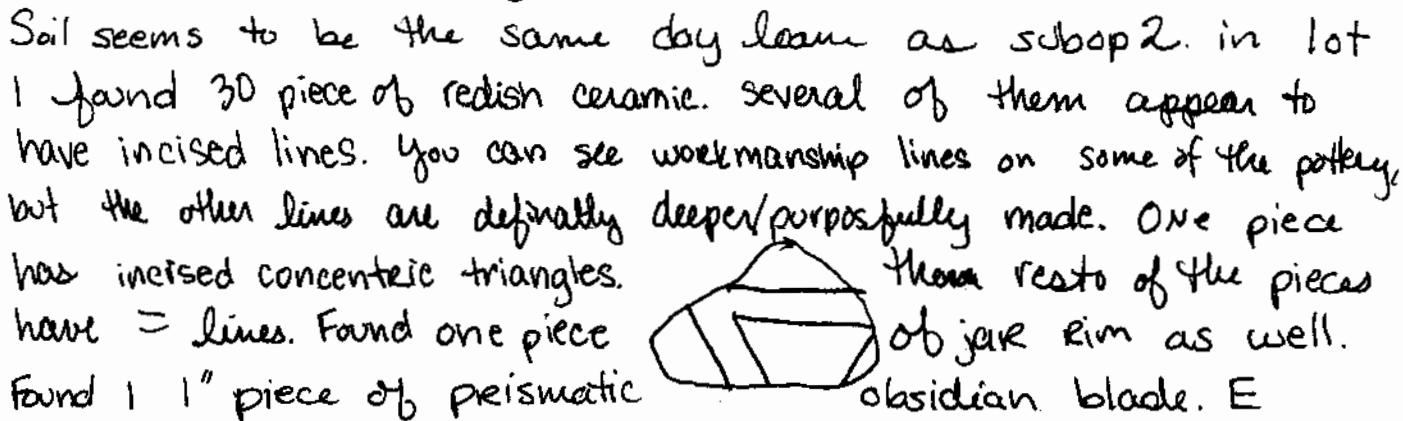 Soil seems to be the same clay loam as subop 2. in lot
1 found 30 piece of redish ceramic. several of them appear to
have incised lines. You can see workmanship lines on some of the pottery,
but the other lines are definatly deeper/purposfully made. One piece
has incised concentric triangles. the resto of the pieces
have = lines. Found one piece of jar rim as well.
Found 1 1" piece of prismatic obsidian blade. E